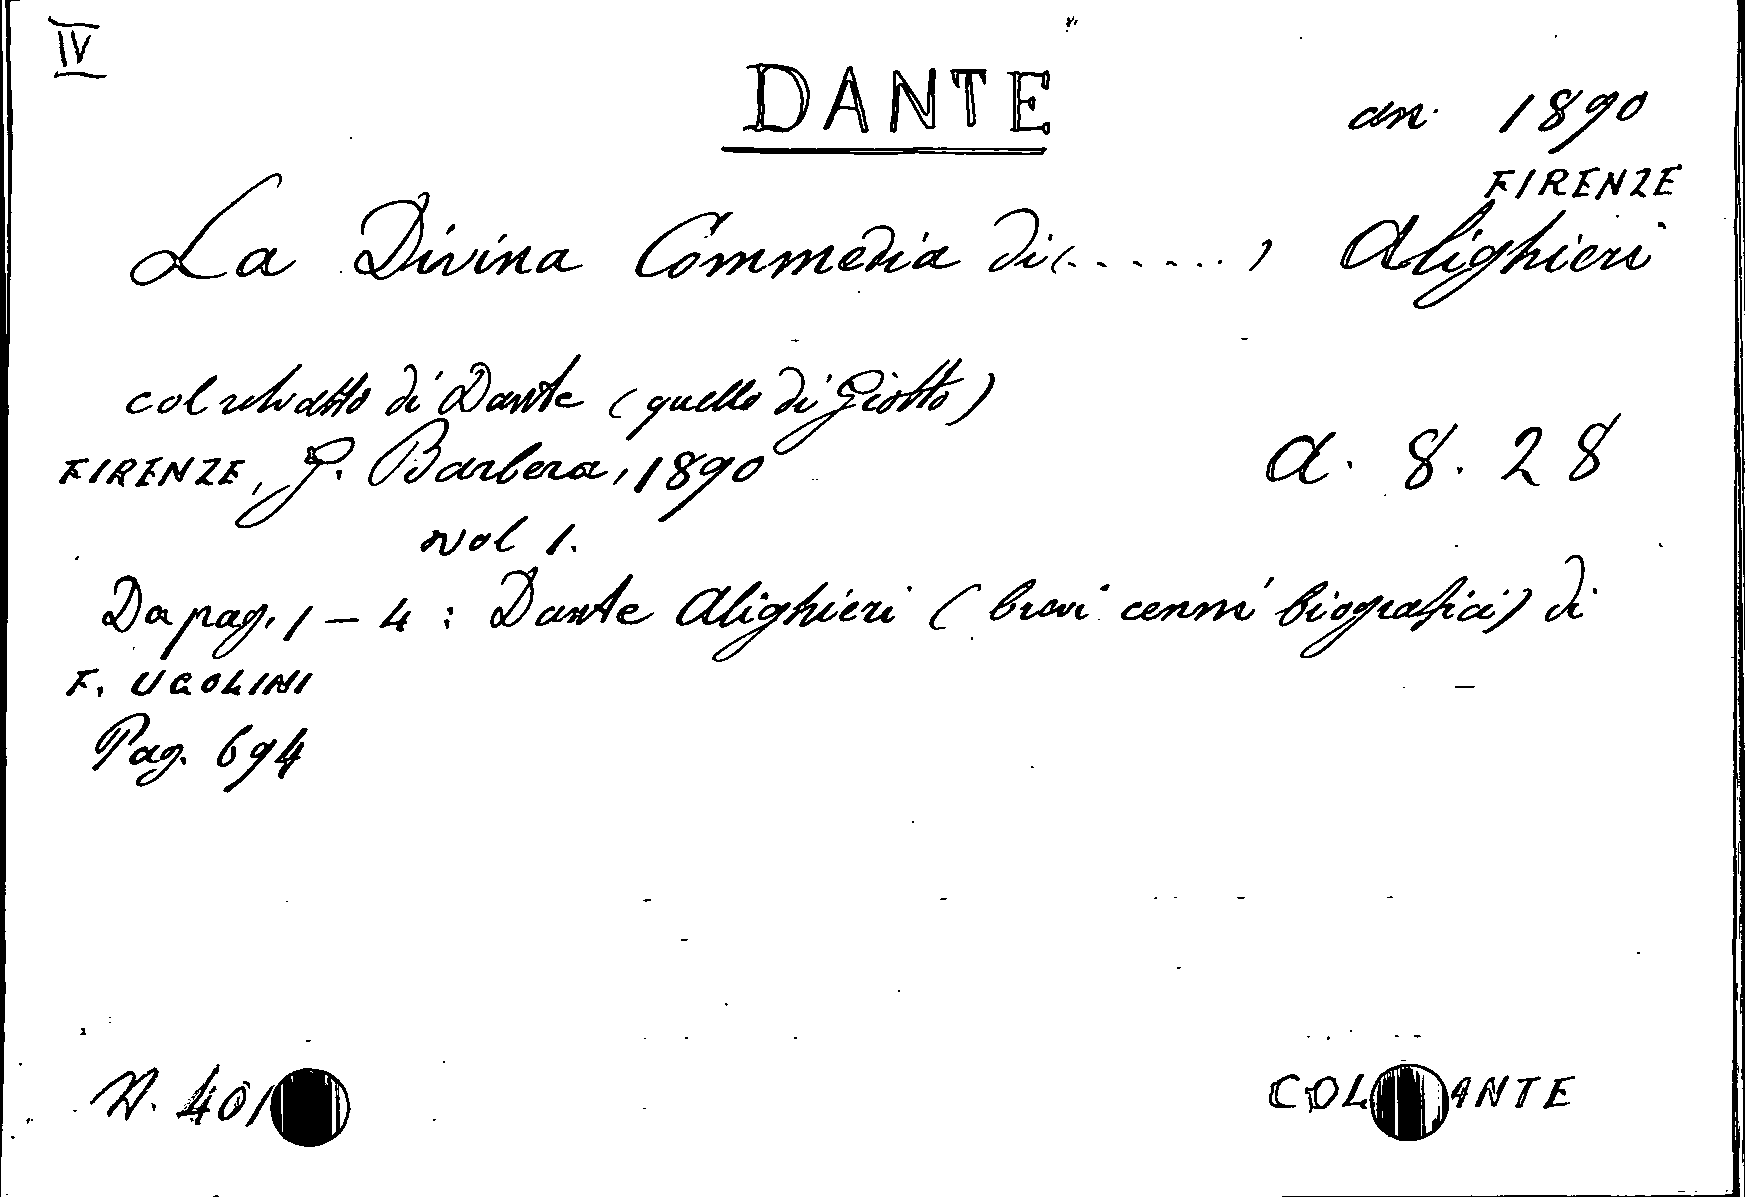 IV
DANTE
an. 1890
FIRENZE
La Divina Commedia di (. . . . . . ) Alighieri
col ritratto di Dante (quello di Giotto)
FIRENZE, G. Barbera, 1890
a. 8. 28
vol 1.
Da pag. 1 – 4 : Dante Alighieri ( brevi cenni biografici) di
F. UGOLINI
Pag. 694
N. 401
COL ANTE